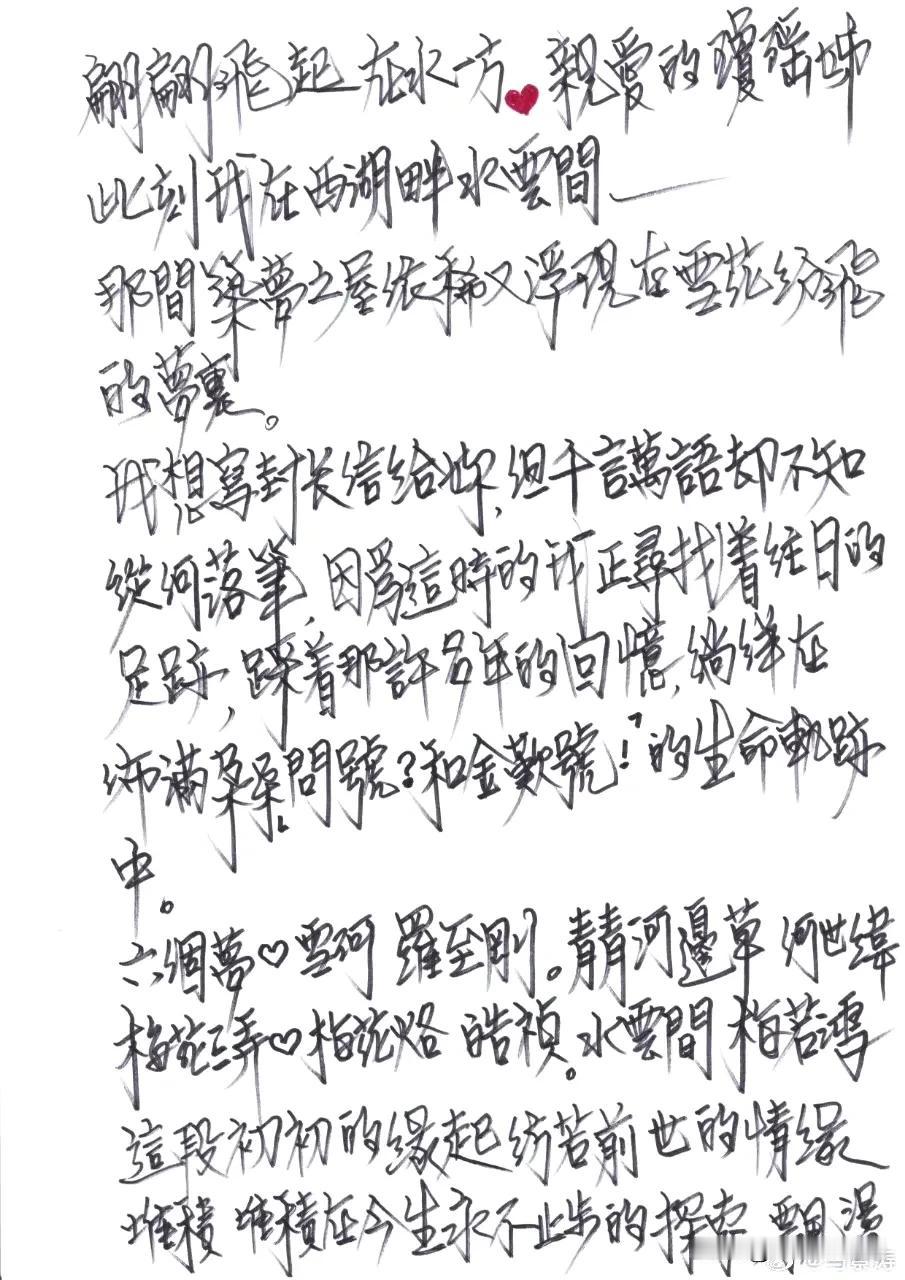 翩翩飛起在水一方。♥親愛的瓊瑤姊
此刻我在西湖畔水雲間——
那間築夢之屋依稀又浮現在雪花紛飛
的夢裏。
我想寫封长信給妳,但千言萬語却不知
從何落筆,因爲這時的我正尋找着往日的
足跡,踩着那許多年的回憶,徜徉在
佈滿朶朶問號?和金歎號!的生命軌跡
中。
六個夢♡雪珂 羅至剛。青青河邊草 何世緯
梅花三弄♡梅花烙 皓禎。水雲間 梅若鴻
這段初初的緣起彷若前世的情緣
堆積 堆積在今生永不止步的探索 飄